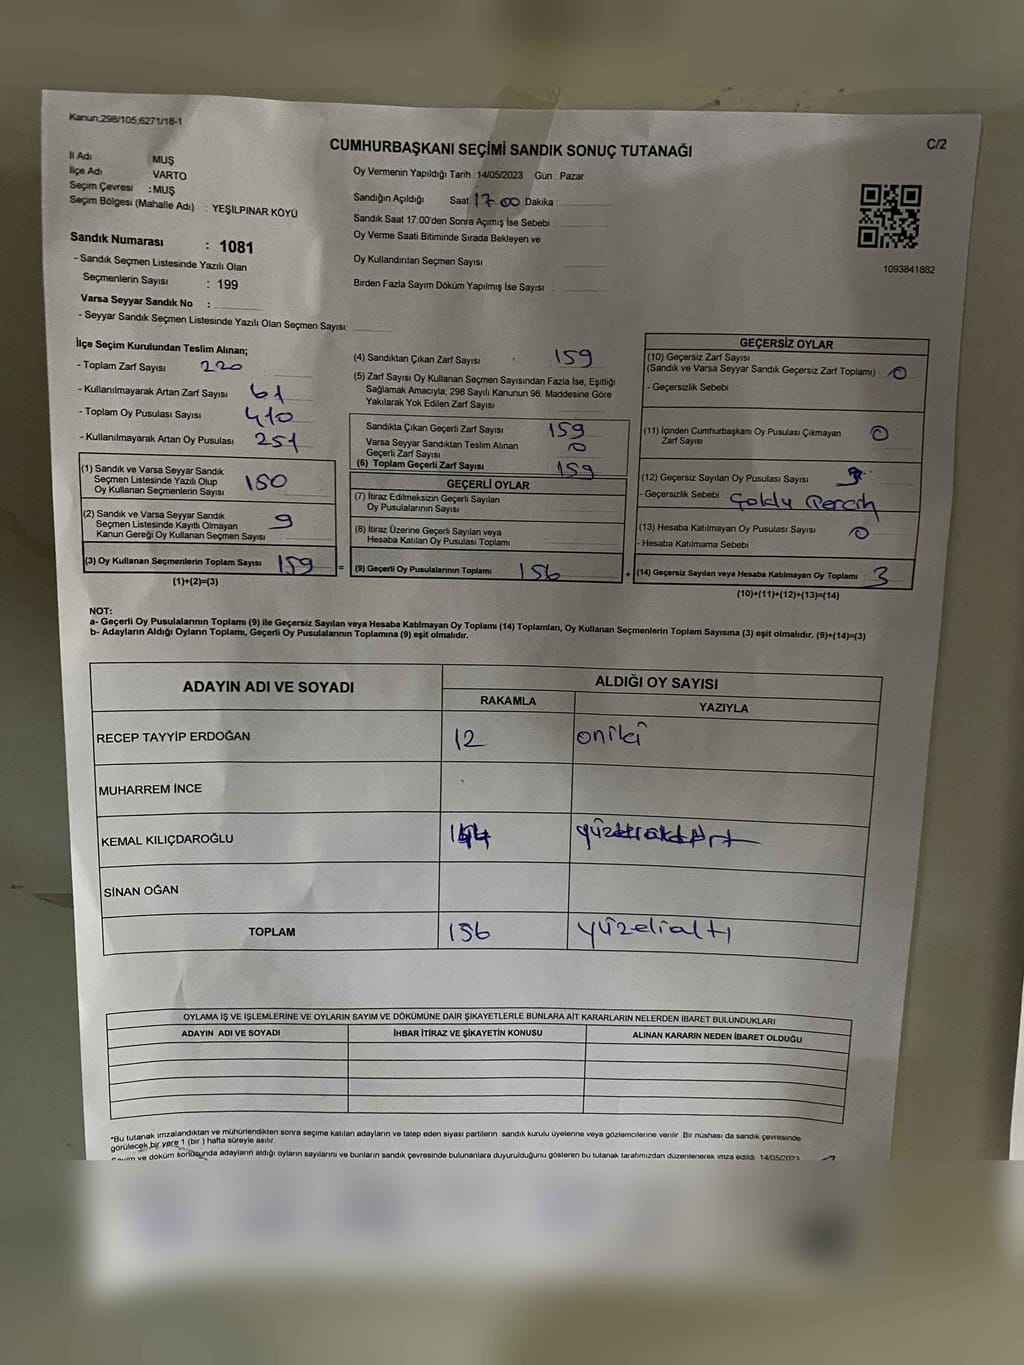 Kanun,298/105,6271/18-1
C/2
CUMHURBAŞKANI SEÇİMİ SANDIK SONUÇ TUTANAĞI
İl Adı : MUŞ
İlçe Adı : VARTO
Seçim Çevresi : MUŞ
Seçim Bölgesi (Mahalle Adı) : YEŞİLPINAR KÖYÜ
Sandık Numarası : 1081
- Sandık Seçmen Listesinde Yazılı Olan
Seçmenlerin Sayısı : 199
Varsa Seyyar Sandık No :
- Seyyar Sandık Seçmen Listesinde Yazılı Olan Seçmen Sayısı:
Oy Vermenin Yapıldığı Tarih : 14/05/2023 Gün : Pazar
Sandığın Açıldığı Saat 17 00 Dakika :
Sandık Saat 17:00'den Sonra Açımış İse Sebebi
Oy Verme Saati Bitiminde Sırada Bekleyen ve
Oy Kullandırılan Seçmen Sayısı
Birden Fazla Sayım Döküm Yapılmış İse Sayısı :
1093841882
İlçe Seçim Kurulundan Teslim Alınan;
- Toplam Zarf Sayısı 220
- Kullanılmayarak Artan Zarf Sayısı 61
- Toplam Oy Pusulası Sayısı 410
- Kullanılmayarak Artan Oy Pusulası 251
(1) Sandık ve Varsa Seyyar Sandık
Seçmen Listesinde Yazılı Olup
Oy Kullanan Seçmenlerin Sayısı 150
(2) Sandık ve Varsa Seyyar Sandık
Seçmen Listesinde Kayıtlı Olmayan
Kanun Gereği Oy Kullanan Seçmen Sayısı 9
(3) Oy Kullanan Seçmenlerin Toplam Sayısı 159 =
(1)+(2)=(3)
(4) Sandıktan Çıkan Zarf Sayısı : 159
(5) Zarf Sayısı Oy Kullanan Seçmen Sayısından Fazla İse, Eşitliği
Sağlamak Amacıyla, 298 Sayılı Kanunun 98. Maddesine Göre
Yakılarak Yok Edilen Zarf Sayısı
Sandıkta Çıkan Geçerli Zarf Sayısı 159
Varsa Seyyar Sandıktan Teslim Alınan
Geçerli Zarf Sayısı 0
(6) Toplam Geçerli Zarf Sayısı 159
GEÇERLİ OYLAR
(7) İtiraz Edilmeksizin Geçerli Sayılan
Oy Pusulalarının Sayısı
(8) İtiraz Üzerine Geçerli Sayılan veya
Hesaba Katılan Oy Pusulası Toplamı
(9) Geçerli Oy Pusulalarının Toplamı 156 +
GEÇERSİZ OYLAR
(10) Geçersiz Zarf Sayısı
(Sandık ve Varsa Seyyar Sandık Geçersiz Zarf Toplamı) : 0
- Geçersizlik Sebebi
(11) İçinden Cumhurbaşkanı Oy Pusulası Çıkmayan
Zarf Sayısı 0
(12) Geçersiz Sayılan Oy Pusulası Sayısı 3
- Geçersizlik Sebebi
(13) Hesaba Katılmayan Oy Pusulası Sayısı 0
- Hesaba Katılmama Sebebi
(14) Geçersiz Sayılan veya Hesaba Katılmayan Oy Toplamı 3
(10)+(11)+(12)+(13)=(14)
NOT:
a- Geçerli Oy Pusulalarının Toplamı (9) ile Geçersiz Sayılan veya Hesaba Katılmayan Oy Toplamı (14) Toplamları, Oy Kullanan Seçmenlerin Toplam Sayısına (3) eşit olmalıdır. (9)+(14)=(3)
b- Adayların Aldığı Oyların Toplamı, Geçerli Oy Pusulalarının Toplamına (9) eşit olmalıdır.
ADAYIN ADI VE SOYADI
ALDIĞI OY SAYISI
RAKAMLA YAZIYLA
RECEP TAYYİP ERDOĞAN 12 oniki
MUHARREM İNCE
KEMAL KILIÇDAROĞLU 144
SİNAN OĞAN
TOPLAM 156 yüzelialtı
OYLAMA İŞ VE İŞLEMLERİNE VE OYLARIN SAYIM VE DÖKÜMÜNE DAİR ŞİKAYETLERLE BUNLARA AİT KARARLARIN NELERDEN İBARET BULUNDUKLARI
ADAYIN ADI VE SOYADI İHBAR İTİRAZ VE ŞİKAYETİN KONUSU ALINAN KARARIN NEDEN İBARET OLDUĞU
*Bu tutanak imzalandıktan ve mühürlendikten sonra seçime katılan adayların ve talep eden siyasi partilerin sandık kurulu üyelerine veya gözlemcilerine verilir. Bir nüshası da sandık çevresinde
görülecek bir yere 1 (bir ) hafta süreyle asılır.
Sayım ve döküm sonusunda adayların aldığı oyların sayılarını ve bunların sandık çevresinde bulunanlara duyurulduğunu gösteren bu tutanak tarafımızdan düzenlenerek imza edildi. 14/05/2023